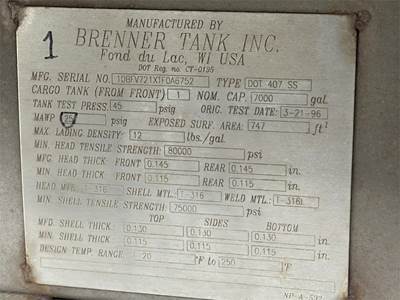 1
MANUFACTURED BY
BRENNER TANK INC.
Fond du Lac, WI USA
DOT Reg. no. CT-0195
MFG. SERIAL NO. 10BFV721X1F0A6752 TYPE DOT 407 SS
CARGO TANK (FROM FRONT) 1 NOM. CAP. 7000 gal.
TANK TEST PRESS. 45 psig ORIG. TEST DATE: 3-21-96
MAWP 25 psig EXPOSED SURF. AREA: 747 ft²
MAX. LADING DENSITY: 12 lbs./gal.
MIN. HEAD TENSILE STRENGTH: 80000 psi
MFG. HEAD THICK FRONT 0.145 REAR 0.145 in.
MIN. HEAD THICK FRONT 0.115 REAR 0.115 in.
HEAD MTL. T-316 SHELL MTL: T-316 WELD MTL: T-316L
MIN. SHELL TENSILE STRENGTH: 75000 psi
TOP SIDES BOTTOM
MFG. SHELL THICK: 0.130 0.130 0.130 in.
MIN. SHELL THICK: 0.115 0.115 0.115 in.
DESIGN TEMP RANGE: 20 °F to 250 °F